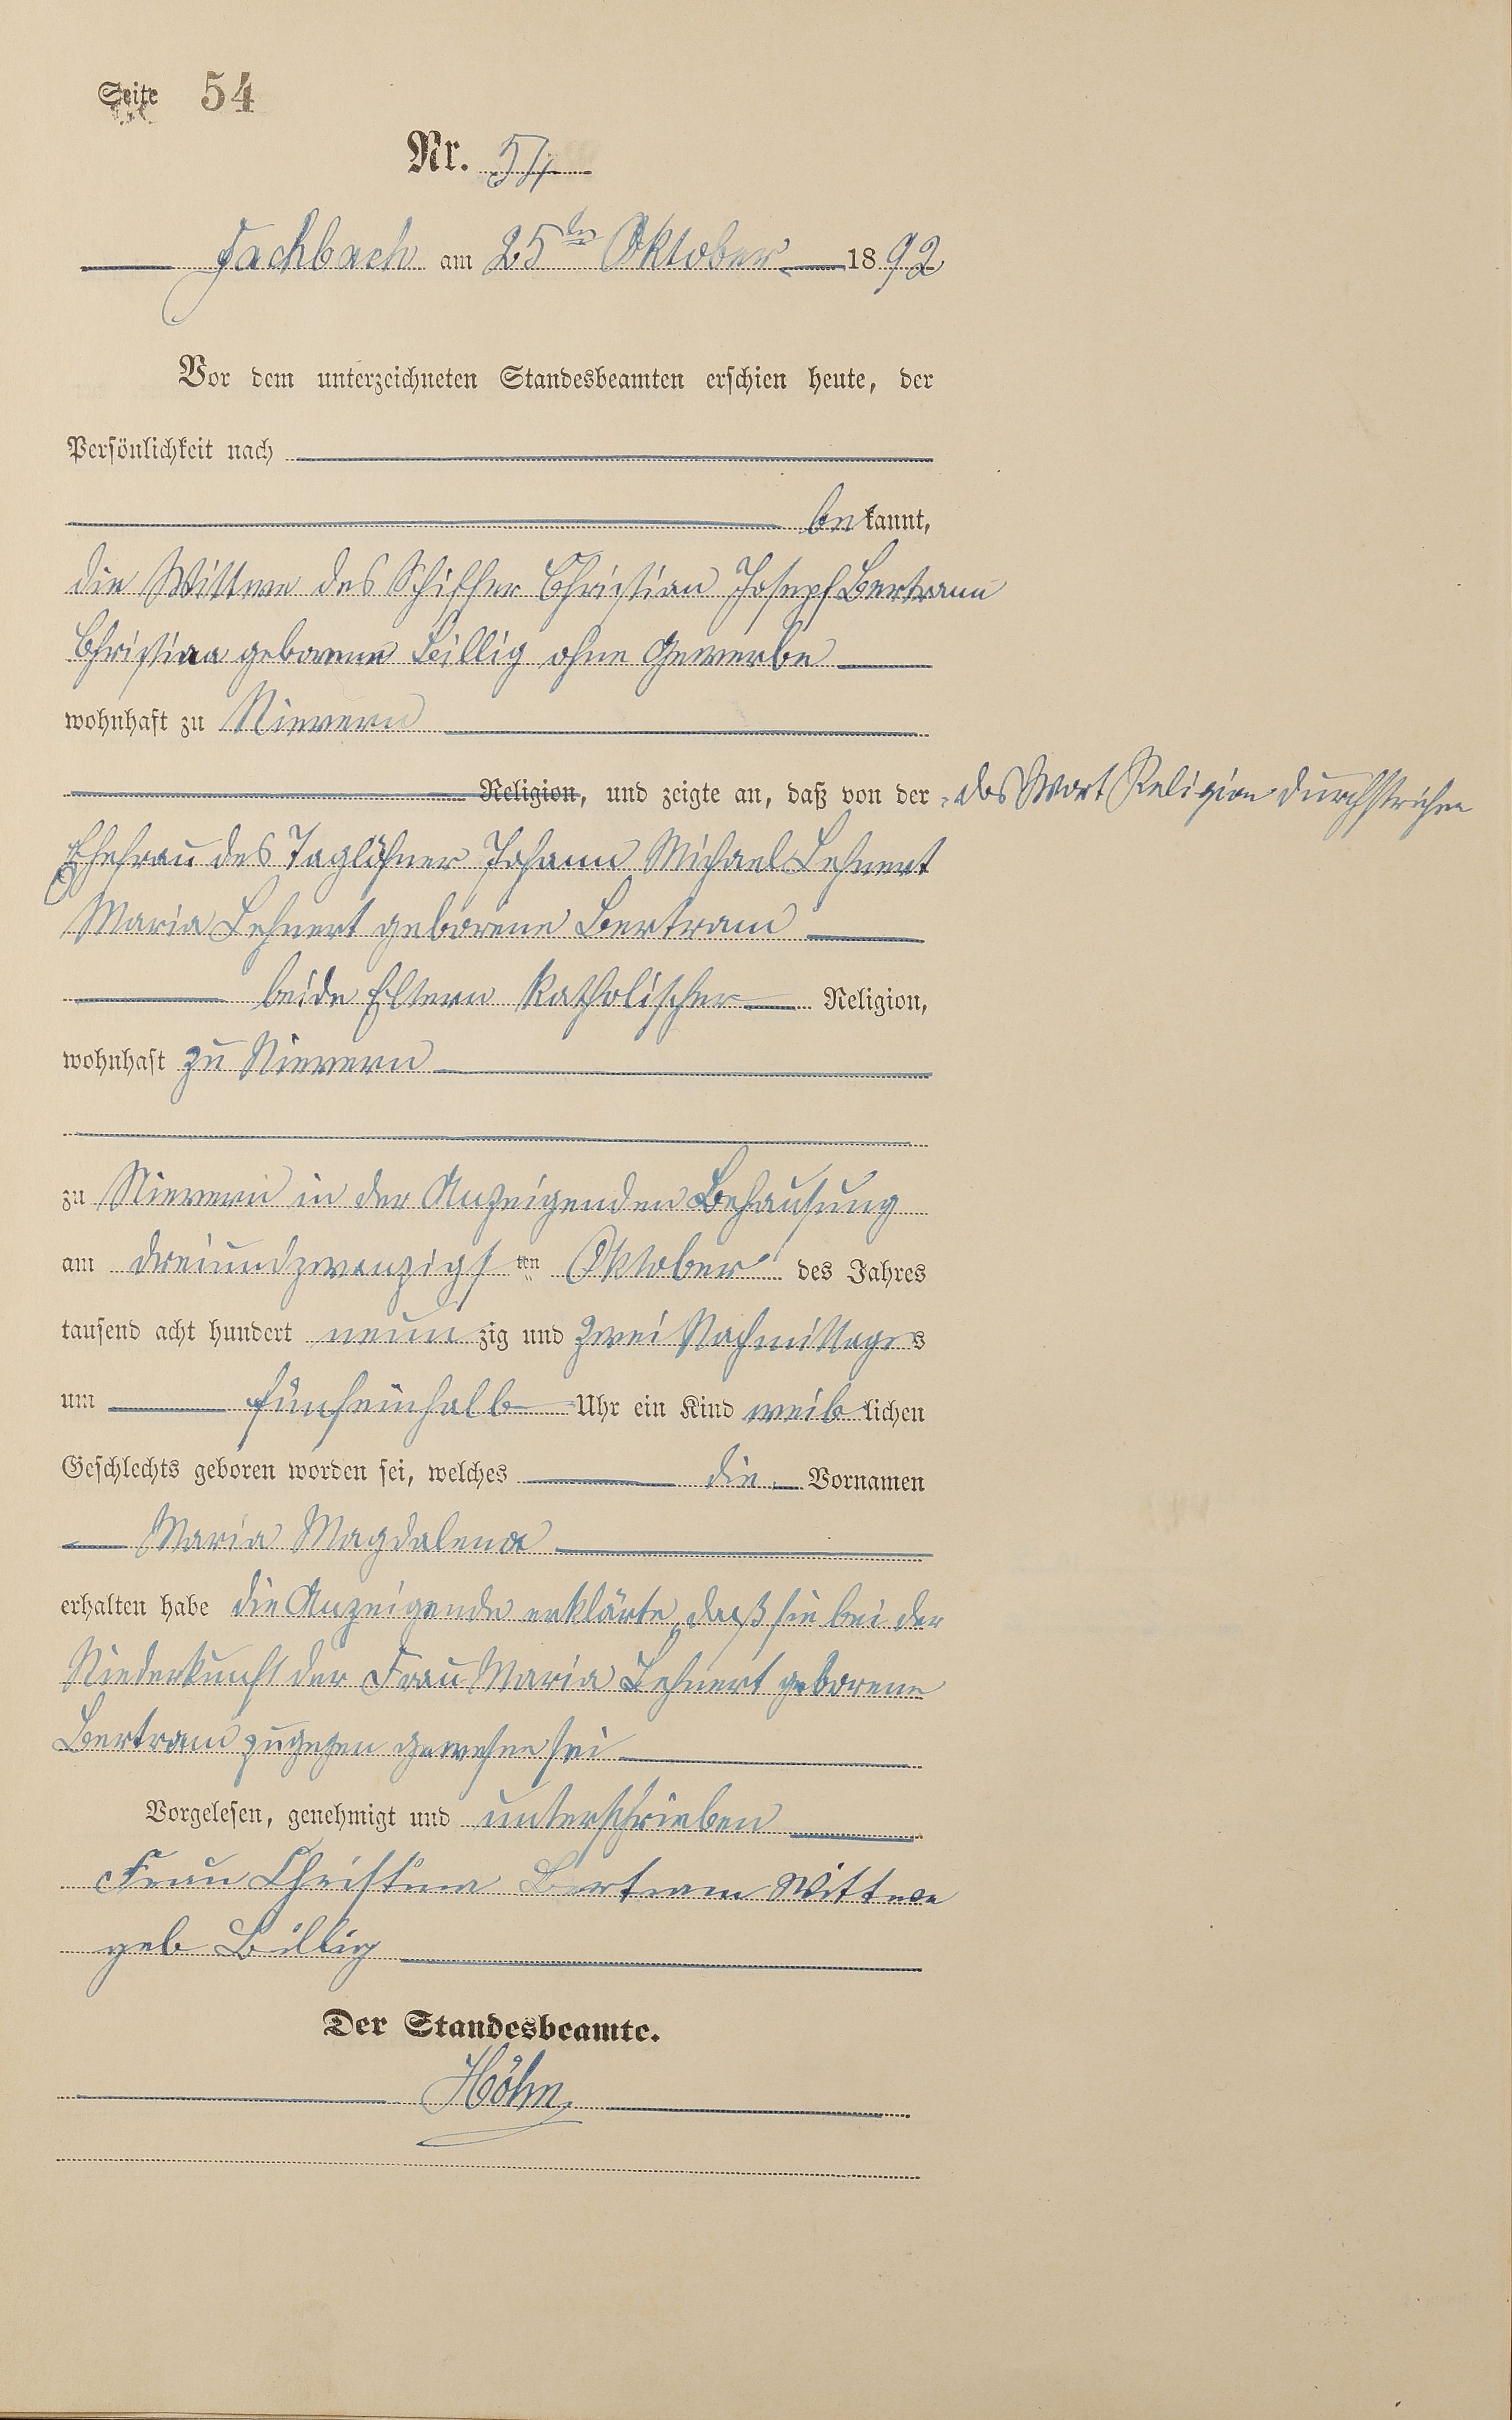 Seite 54
Nr. 54
Fachbach am 25ten Oktober 1892
Vor dem unterzeichneten Standesbeamten erschien heute, der
Persönlichkeit nach
bekannt,
die Wittwe des Schiffer Christian Joseph Bertram
Christina geborene Billig ohne Gewerbe
wohnhaft zu Nievern
Religion, und zeigte an, daß von der das Wort Religion durchstrichen
Ehefrau des Taglöhner Johann Michael Lehnert
Maria Lehnert geborene Bertram
beide Eltern katholischer Religion,
wohnhaft zu Nievern
zu Nievern in der Anzeigenden Behausung
am dreiundzwanzigsten Oktober des Jahres
tausend acht hundert neunzig und zwei Nachmittages
um fünfeinhalb Uhr ein Kind weiblichen
Geschlechts geboren worden sei, welches die Vornamen
Maria Magdalena
erhalten habe die Anzeigende erklärte, daß sie bei der
Niederkunft der Frau Maria Lehnert geborene
Bertram zugegen gewesen sei
Vorgelesen, genehmigt und unterschrieben
Frau Christina Bertram Wittwe
geb Billig
Der Standesbeamte.
Höhn